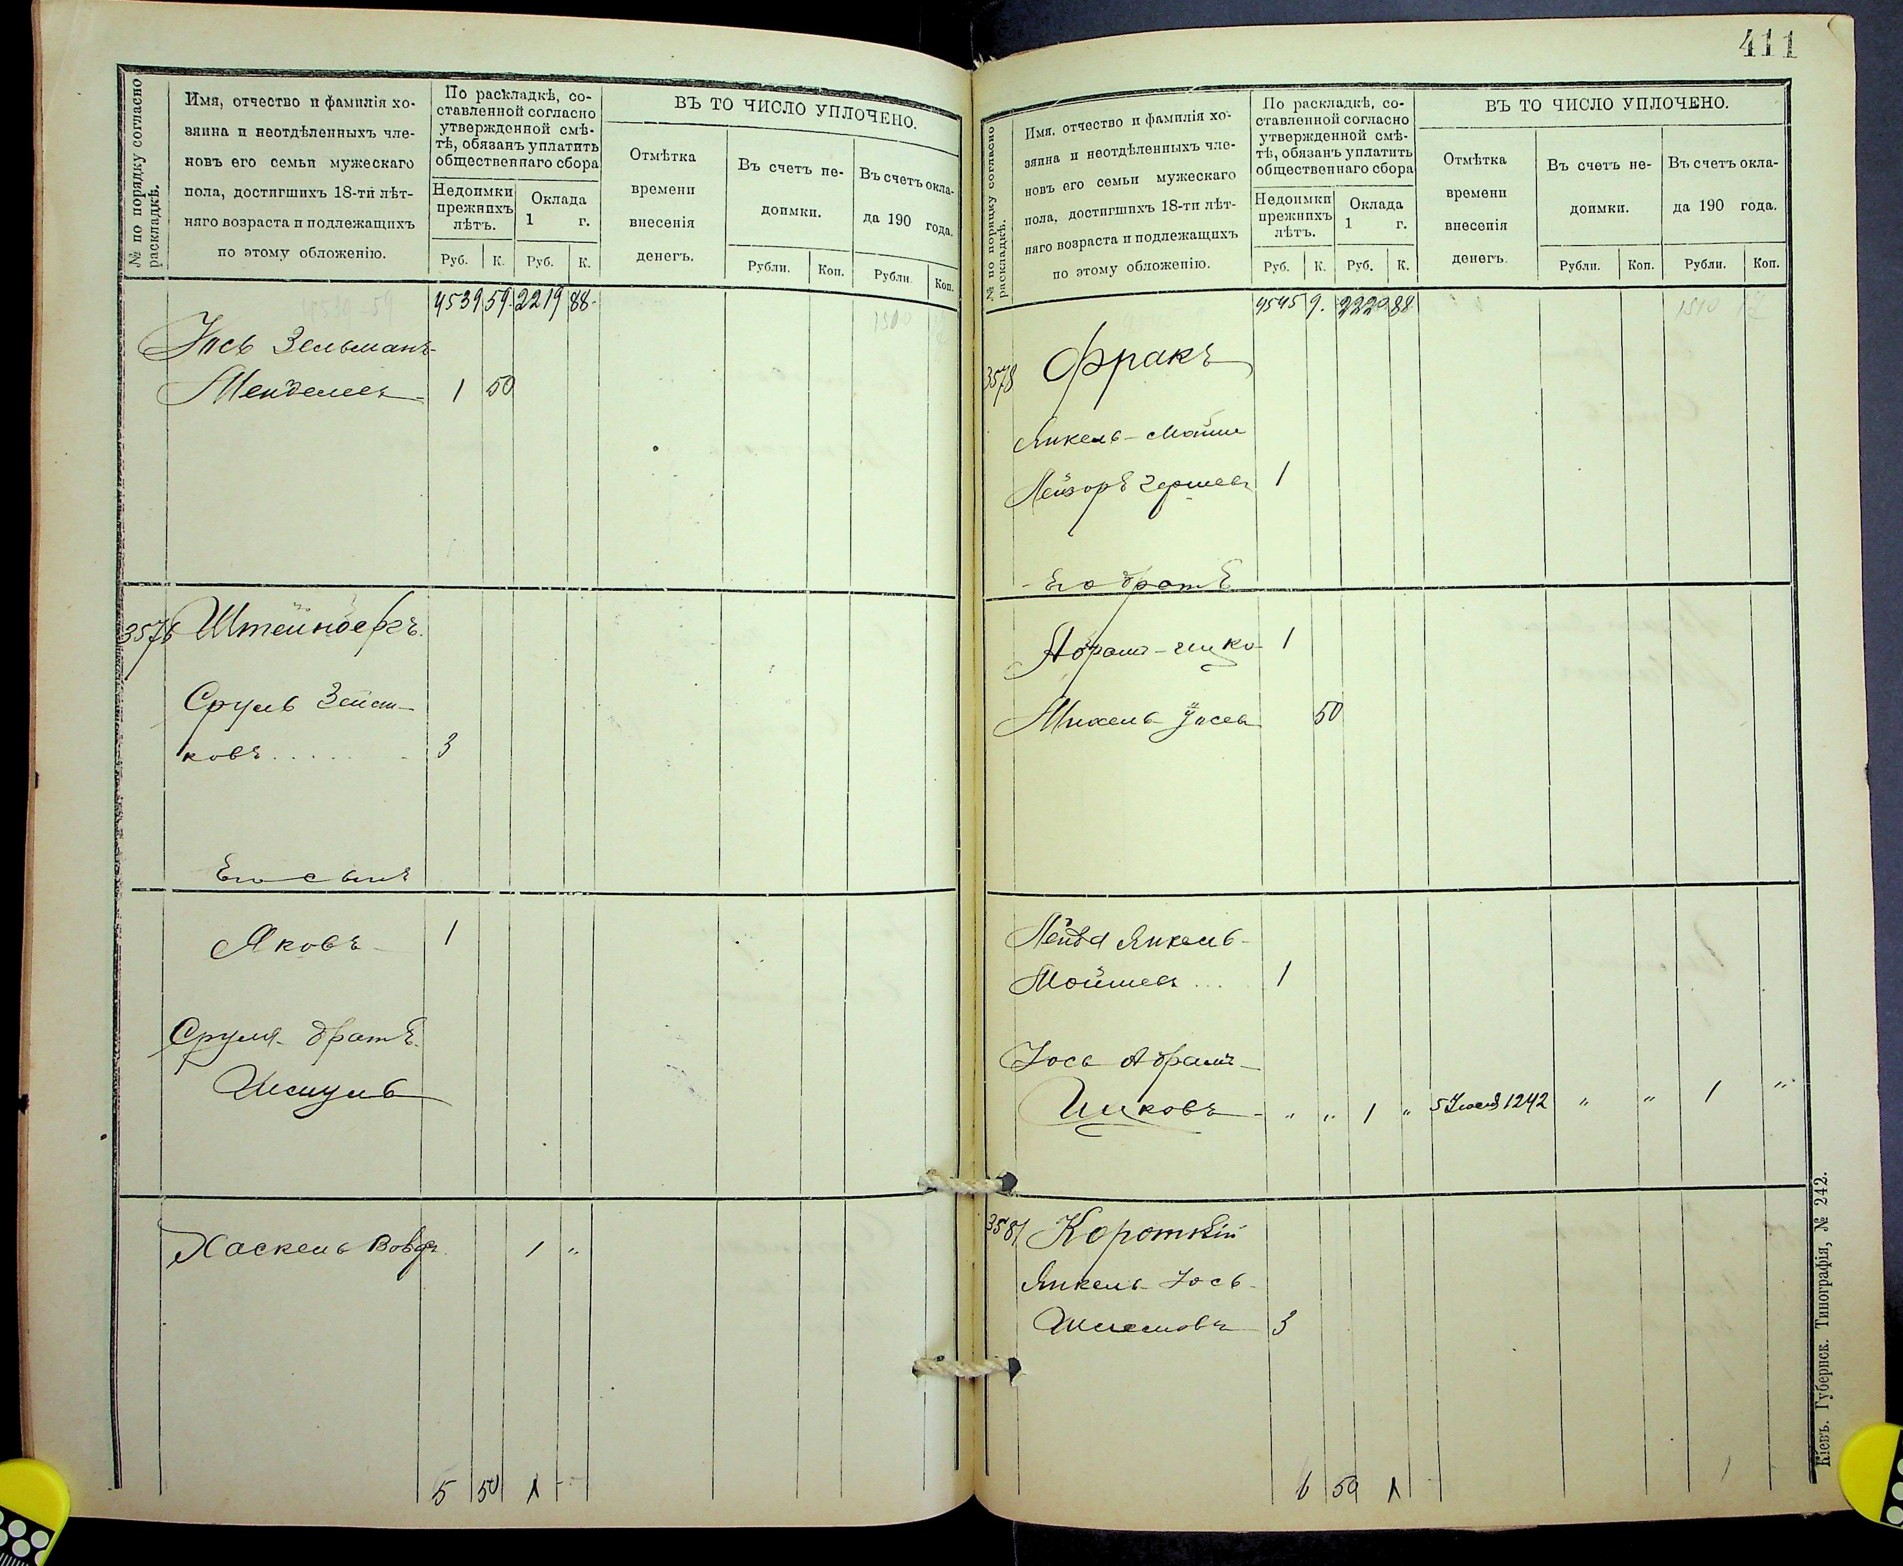 411
№ по порядку согласно
раскладкѣ.
Имя, отчество и фамилія хо-
зяина и неотдѣленныхъ чле-
новъ его семьи мужескаго
пола, достигшихъ 18-ти лѣт-
няго возраста и подлежащихъ
по этому обложенію.
По раскладкѣ, со-
ставленной согласно
утвержденной смѣ-
тѣ, обязанъ уплатить
общественнаго сбора
Недоимки
прежнихъ
лѣтъ.
Оклада
1 г.
Руб. К. Руб. К.
ВЪ ТО ЧИСЛО УПЛОЧЕНО.
Отмѣтка
времени
внесенія
денегъ.
Въ счетъ не-
доимки.
Въ счетъ окла-
да 190 года.
Рубли. Коп. Рубли. Коп.
4539 59. 2219 88-
Іось Зельманъ-
Менделев 1 50
3576 Штейнбергъ.
Сруль Зейли-
ковъ ..... 3
Его сынъ
Яковъ 1
Сруля братъ
Шмуль
Хаскель Вовф. 1 "
5 50 1 -
№ по порядку согласно
раскладкѣ.
Имя, отчество и фамилія хо-
зяина и неотдѣленныхъ чле-
новъ его семьи мужескаго
пола, достигшихъ 18-ти лѣт-
няго возраста и подлежащихъ
по этому обложенію.
По раскладкѣ, со-
ставленной согласно
утвержденной смѣ-
тѣ, обязанъ уплатить
общественнаго сбора
Недоимки
прежнихъ
лѣтъ.
Оклада
1 г.
Руб. К. Руб. К.
ВЪ ТО ЧИСЛО УПЛОЧЕНО.
Отмѣтка
времени
внесенія
денегъ.
Въ счетъ не-
доимки.
Въ счетъ окла-
да 190 года.
Рубли. Коп. Рубли. Коп.
4545 9. 2220 88
1510
3578 Фракъ
Янкель-Мойше
Лейзоръ Гершев 1
Его братъ
Абрамъ-Ицко 1
Михель Іосев 50
Лейба Янкель-
Мойшев ... 1
Іось Абрамъ-
Ицковъ - " " 1 " 5 Іюня 1242 " " 1 "
3581 Короткій
Янкель Іось-
Шлемовъ 3
6 50 1 1
Кіевъ. Губернск. Типографія, № 242.